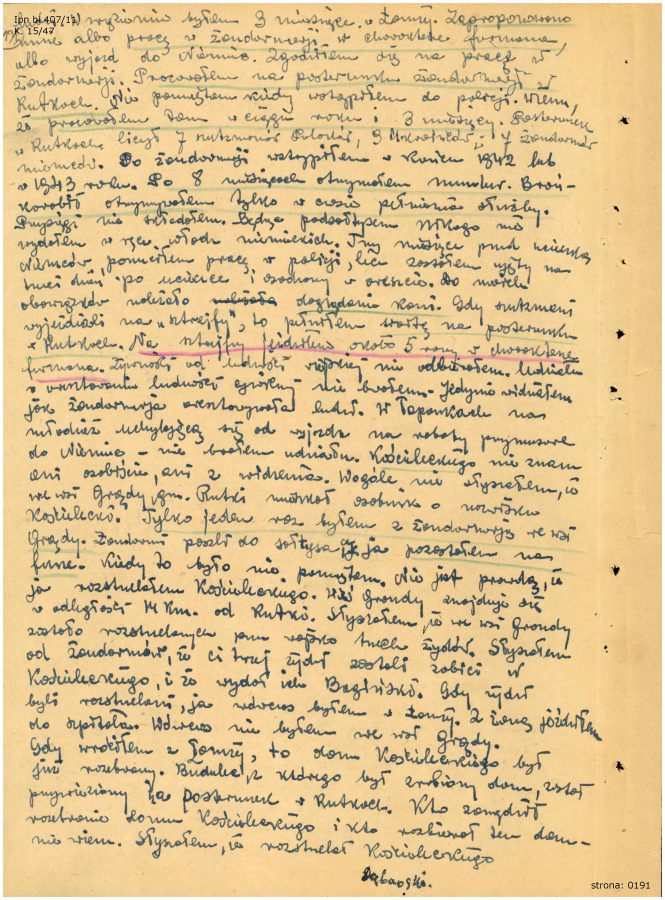 Ipn bi 407/11)
K. 15/47
więzieniu byłem 3 miesiące w Łomży. Zaproponowano
mnie albo pracę w żandarmerji w charakterze furmana,
albo wyjazd do Niemiec. Zgodziłem się na pracę w
żandarmerji. Pracowałem na posterunku żandarmerji w
Rutkach. Nie pamiętam kiedy wstąpiłem do policji. Wiem,
że pracowałem tam w ciągu roku i 3 miesięcy. Posterunek
w Rutkach liczył 7 Polaków, 3 Ukraińców i 7 żandarmów
niemców. Do żandarmerji wstąpiłem w koniec 1942 lub
w 1943 roku. Po 8 miesiącach otrzymałem mundur. Broń-
karabin otrzymywałem tylko w czasie pełnienia służby.
Przysięgi nie składałem. Będąc podsołtysem nikogo nie
wydałem w ręce władz niemieckich. Trzy miesiące przed ucieczką
Niemców porzuciłem pracę w policji, lecz zostałem ujęty na
trzeci dzień po ucieczce i osadzony w areszcie. Do moich
obowiązków należało doglądanie koni. Gdy
wyjeżdżali na „strejfy", to pełniłem wartę na posterunku
w Rutkach. Na strejfy jeździłem około 5 razy w charakterze
furmana. Żywności od ludności wiejskiej nie odbierałem. Udziału
w aresztowaniu ludności cywilnej nie brałem. Jedynie widziałem
jak żandarmerja aresztowywała ludzi. W łapankach na
młodzież uchylającą się od wyjazdu na roboty przymusowe
do Niemiec – nie brałem udziału. Kościeleckiego nie znam
ani osobiście, ani z widzenia. Wogóle nie słyszałem, że
we wsi Grądy gm. Rutki mieszkał osobnik o nazwisku
Kościelecki. Tylko jeden raz byłem z żandarmerją we wsi
Grądy. Żandarmi poszli do sołtysa, a ja pozostałem na
furze. Kiedy to było nie pamiętam. Nie jest prawdą, że
ja rozstrzelałem Kościeleckiego. Wieś Grondy znajduje się
w odległości 14 km. od Rutki. Słyszałem, że we wsi Grondy
zostało rozstrzelanych przez wojsko trzech żydów. Słyszałem
od żandarmów, że ci trzej żydzi zostali zabici u
Kościeleckiego, i że wydał ich Bagiński. Gdy żydzi
byli rozstrzelani, ja wówczas byłem w Łomży. Z żoną jeździłem
do szpitala. Wówczas nie byłem we wsi Grądy.
Gdy wróciłem z Łomży, to dom Kościeleckiego był
już rozebrany. Budulec, z którego był zrobiony dom, został
przywieziony na posterunek w Rutkach. Kto zarządził
rozebranie domu Kościeleckiego i kto rozbierał ten dom –
nie wiem. Słyszałem, że rozstrzelał Kościeleckiego
strona: 0191